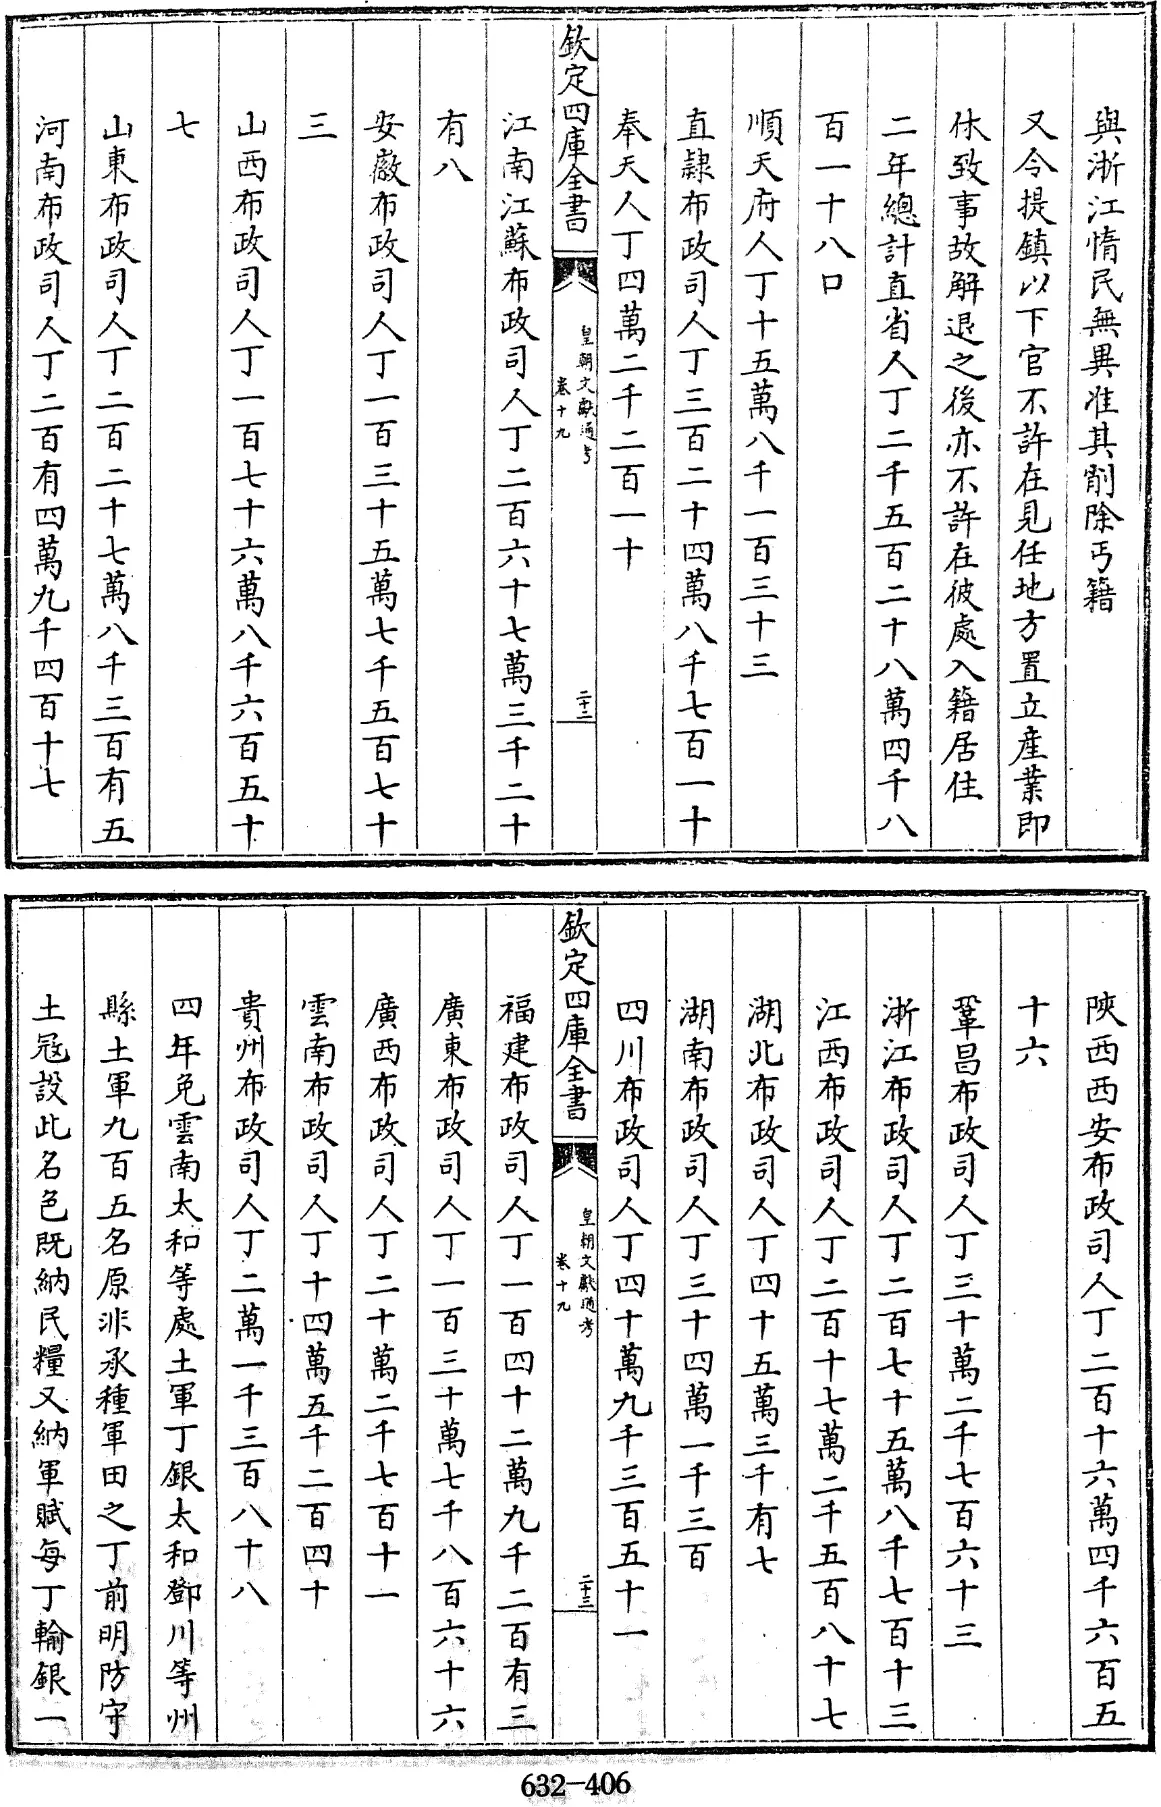 與浙江惰民無異准其削除丐籍
又令提鎮以下官不許在見任地方置立産業即
休致事故解退之後亦不許在彼處入籍居住
二年總計直省人丁二千五百二十八萬四千八
百一十八口
順天府人丁十五萬八千一百三十三
直隷布政司人丁三百二十四萬八千七百一十
奉天人丁四萬二千二百一十
欽定四庫全書
皇朝文獻通考
卷十九
二十二
江南江蘇布政司人丁二百六十七萬三千二十
有八
安徽布政司人丁一百三十五萬七千五百七十
三
山西布政司人丁一百七十六萬八千六百五十
七
山東布政司人丁二百二十七萬八千三百有五
河南布政司人丁二百有四萬九千四百十七
陜西西安布政司人丁二百十六萬四千六百五
十六
鞏昌布政司人丁三十萬二千七百六十三
浙江布政司人丁二百七十五萬八千七百十三
江西布政司人丁二百十七萬二千五百八十七
湖北布政司人丁四十五萬三千有七
湖南布政司人丁三十四萬一千三百
四川布政司人丁四十萬九千三百五十一
欽定四庫全書
皇朝文獻通考
卷十九
二十三
福建布政司人丁一百四十二萬九千二百有三
廣東布政司人丁一百三十萬七千八百六十六
廣西布政司人丁二十萬二千七百十一
雲南布政司人丁十四萬五千二百四十
貴州布政司人丁二萬一千三百八十八
四年免雲南太和等處土軍丁銀太和鄧川等州
縣土軍九百五名原非承種軍田之丁前明防守
土冦設此名色既納民糧又納軍賦每丁輸銀一
632-406